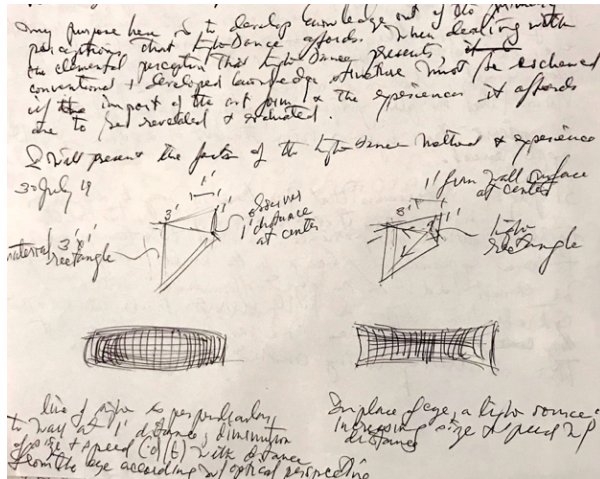 my purpose here is to develop knowledge out of the primary
perceptions that Light Dance affords. When dealing with
the elemental perception that Light Dance presents
conventional & developed knowledge structure must be eschewed
if the import of the art form & the experiences it affords
are to get revealed & evaluated.
I will present the factors of the Light Dance method & experience
30 July 19
1'
3' 1'
observer
1' distance
at center
material 3'
rectangle
1' from wall surface
at center
3' 1'
light
rectangle
line of sight is perpendicular
to wall at 1' distance, diminution
of size & speed with distance
from the eye according w/ optical perspective
In place of eye, a light source
increasing size & speed w/
distance